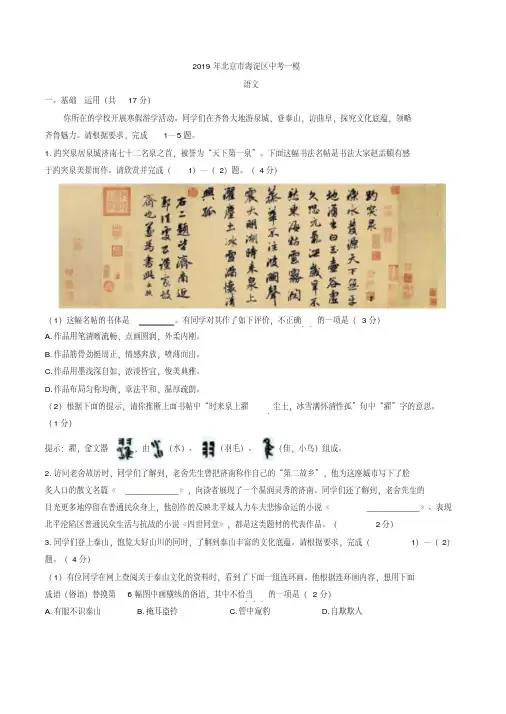 2019 年北京市海淀区中考一模
语文
一、基础 运用（共 17 分）
你所在的学校开展寒假游学活动。同学们在齐鲁大地游泉城，登泰山，访曲阜，探究文化底蕴，领略
齐鲁魅力。请根据要求，完成 1—5 题。
1. 趵突泉居泉城济南七十二名泉之首，被誉为“天下第一泉”。下面这幅书法名帖是书法大家赵孟頫有感
于趵突泉美景而作。请欣赏并完成（ 1）—（ 2）题。（ 4 分）
趵突泉
濼水發源天下無
地湧出白玉壺谷虛
久恐元氣洩歲旱不
愁東海枯雲霧潤
蒸華不注波瀾聲
震大明湖時来泉上
濯塵土冰雪滿懷清
興孤
右二題皆濟南近
（1）这幅名帖的书体是 ________。有同学对其作了如下评价，不正确 的一项是（ 3 分）
A. 作品用笔清晰流畅，点画圆润，外柔内刚。
B. 作品筋骨劲挺周正，情感奔放，喷薄而出。
C. 作品用墨浅深自如，浓淡皆宜，俊美典雅。
D. 作品布局匀称均衡，章法平和，温厚疏朗。
（2）根据下面的提示，请你推断上面书帖中“时来泉上濯 尘土，冰雪满怀清性孤”句中“濯”字的意思。
（1 分）
提示：濯，金文器 ，由 （水）、 （羽毛）、 （隹，小鸟）组成。
2. 访问老舍故居时，同学们了解到，老舍先生曾把济南称作自己的“第二故乡”，他为这座城市写下了脍
炙人口的散文名篇《 ____________》，向读者展现了一个温润灵秀的济南。同学们还了解到，老舍先生的
目光更多地停留在普通民众身上，他创作的反映北平城人力车夫悲惨命运的小说《 ____________》、表现
北平沦陷区普通民众生活与抗战的小说《四世同堂》，都是这类题材的代表作品。（ 2 分）
3. 同学们登上泰山，饱览大好山川的同时，了解到泰山丰富的文化底蕴。请根据要求，完成（ 1）—（ 2）
题。（ 4 分）
（1）有位同学在网上查阅关于泰山文化的资料时，看到了下面一组连环画。他根据连环画内容，想用下面
成语（俗语）替换第 6 幅图中画横线的俗语，其中不恰当 的一项是（ 2 分）
A. 有眼不识泰山 B. 掩耳盗铃 C. 管中窥豹 D. 自欺欺人